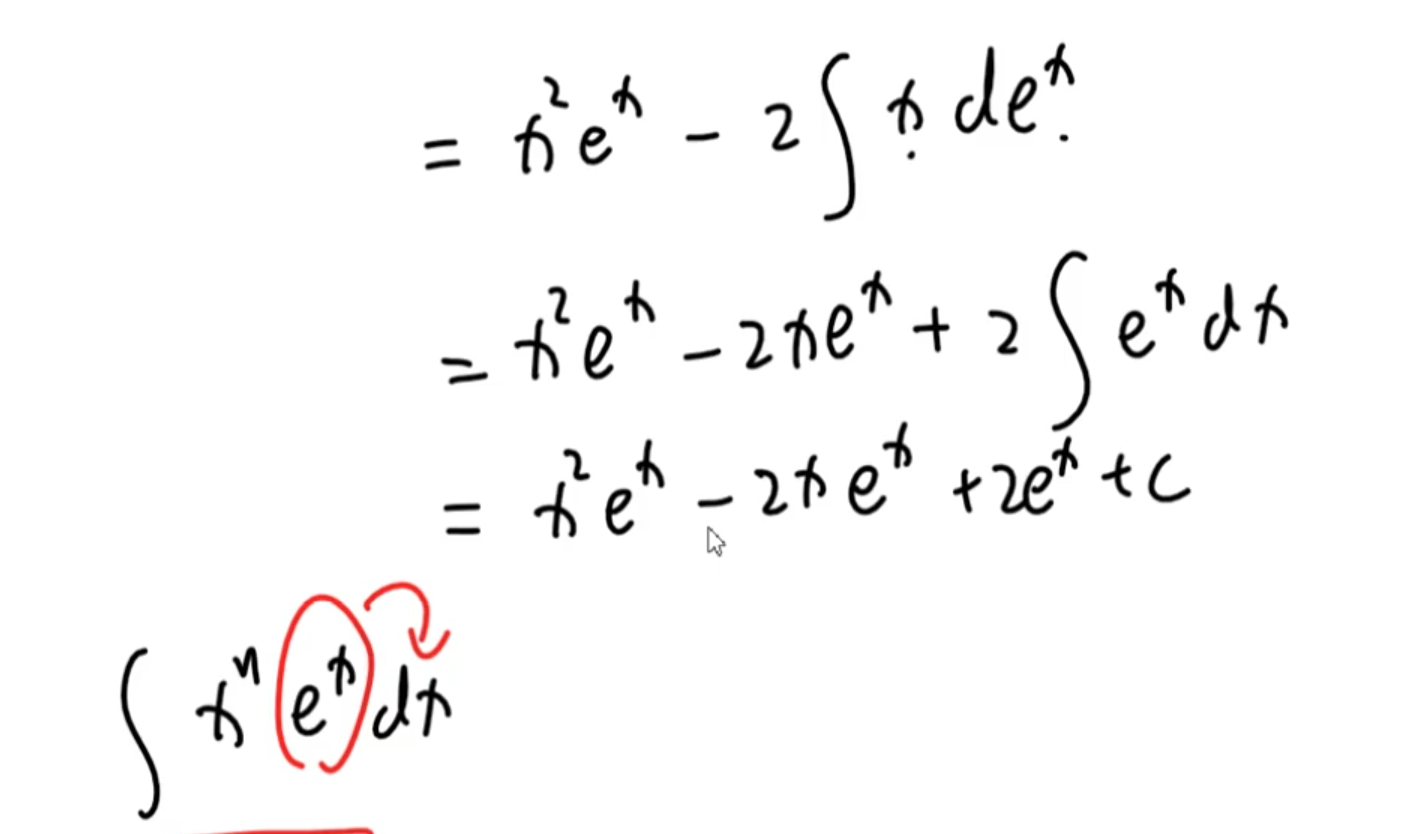 = x²eˣ - 2∫x deˣ
= x²eˣ - 2xeˣ + 2∫eˣdx
= x²eˣ - 2xeˣ + 2eˣ + c
∫xⁿeˣdx